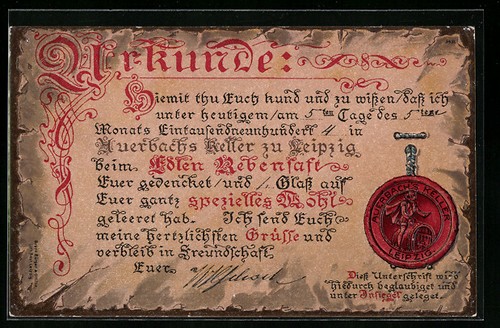 Urkunde:
Hiemit thu Euch kund und zu wißen/daß ich
unter heutigem/am 5ten Tage des 5tens
Monats Eintausendneunhundert 4 in
Auerbachs Keller zu Leipzig
beim Edlen Rebensaft
Euer gedencket/und 1 Glaß auf
Euer gantz spezielles Wohl
geleeret hab. Ich send Euch
meine hertzlichsten Grüsse und
verbleib in Freundschaft
Euer
AUERBACHS KELLER
LEIPZIG
Dieß Unterschrift wird
hiedurch beglaubiget und
unter Insiegel geleget.